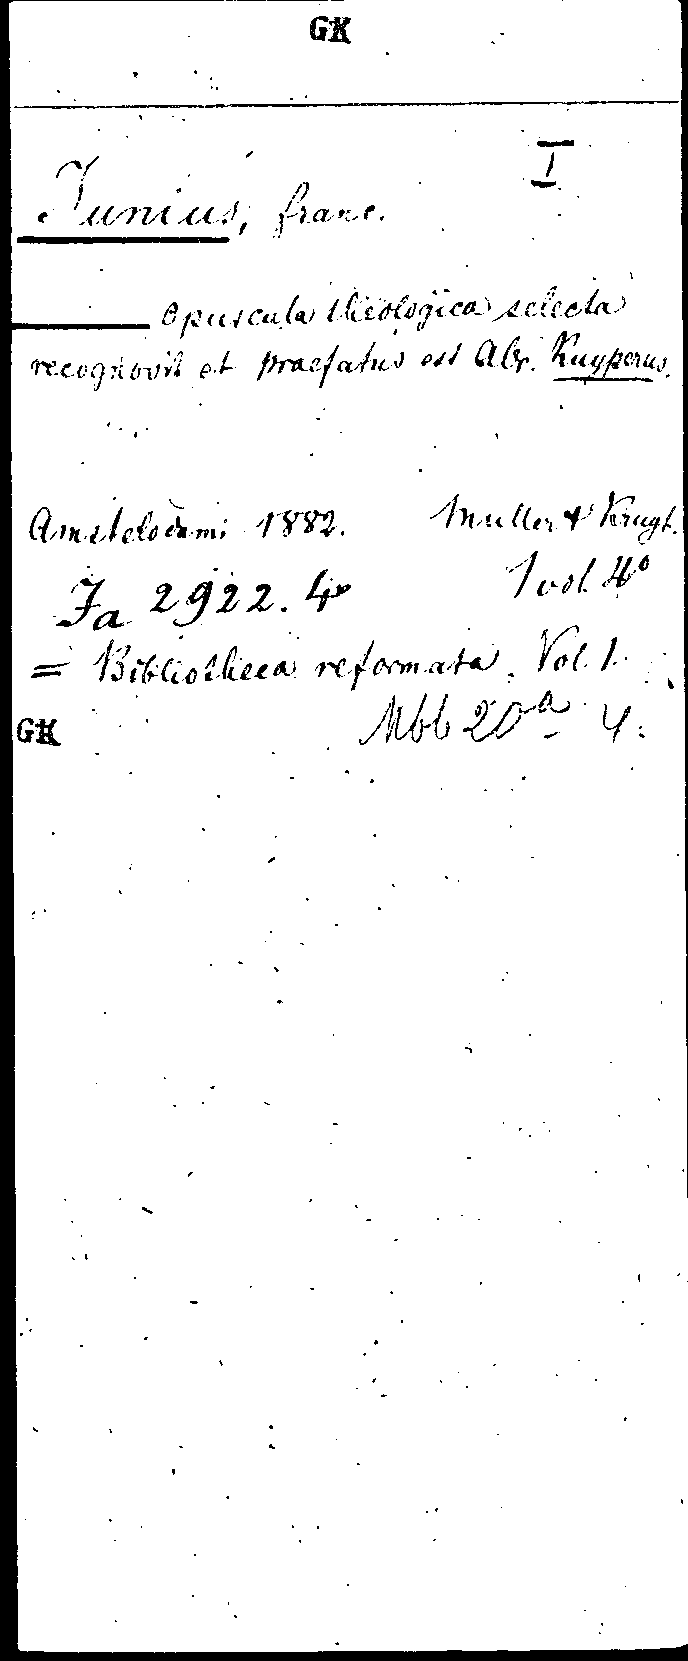 GK
I
Junius, franc.
opuscula theologica selecta
recognovit et praefatus est Abr. Kuyperus.
Amstelodami 1882. Muller & Kruyt.
1 vol. 4°
Ja 2922. 4°
= Bibliotheca reformata. Vol. 1.
Mbb 20a 4.
GK